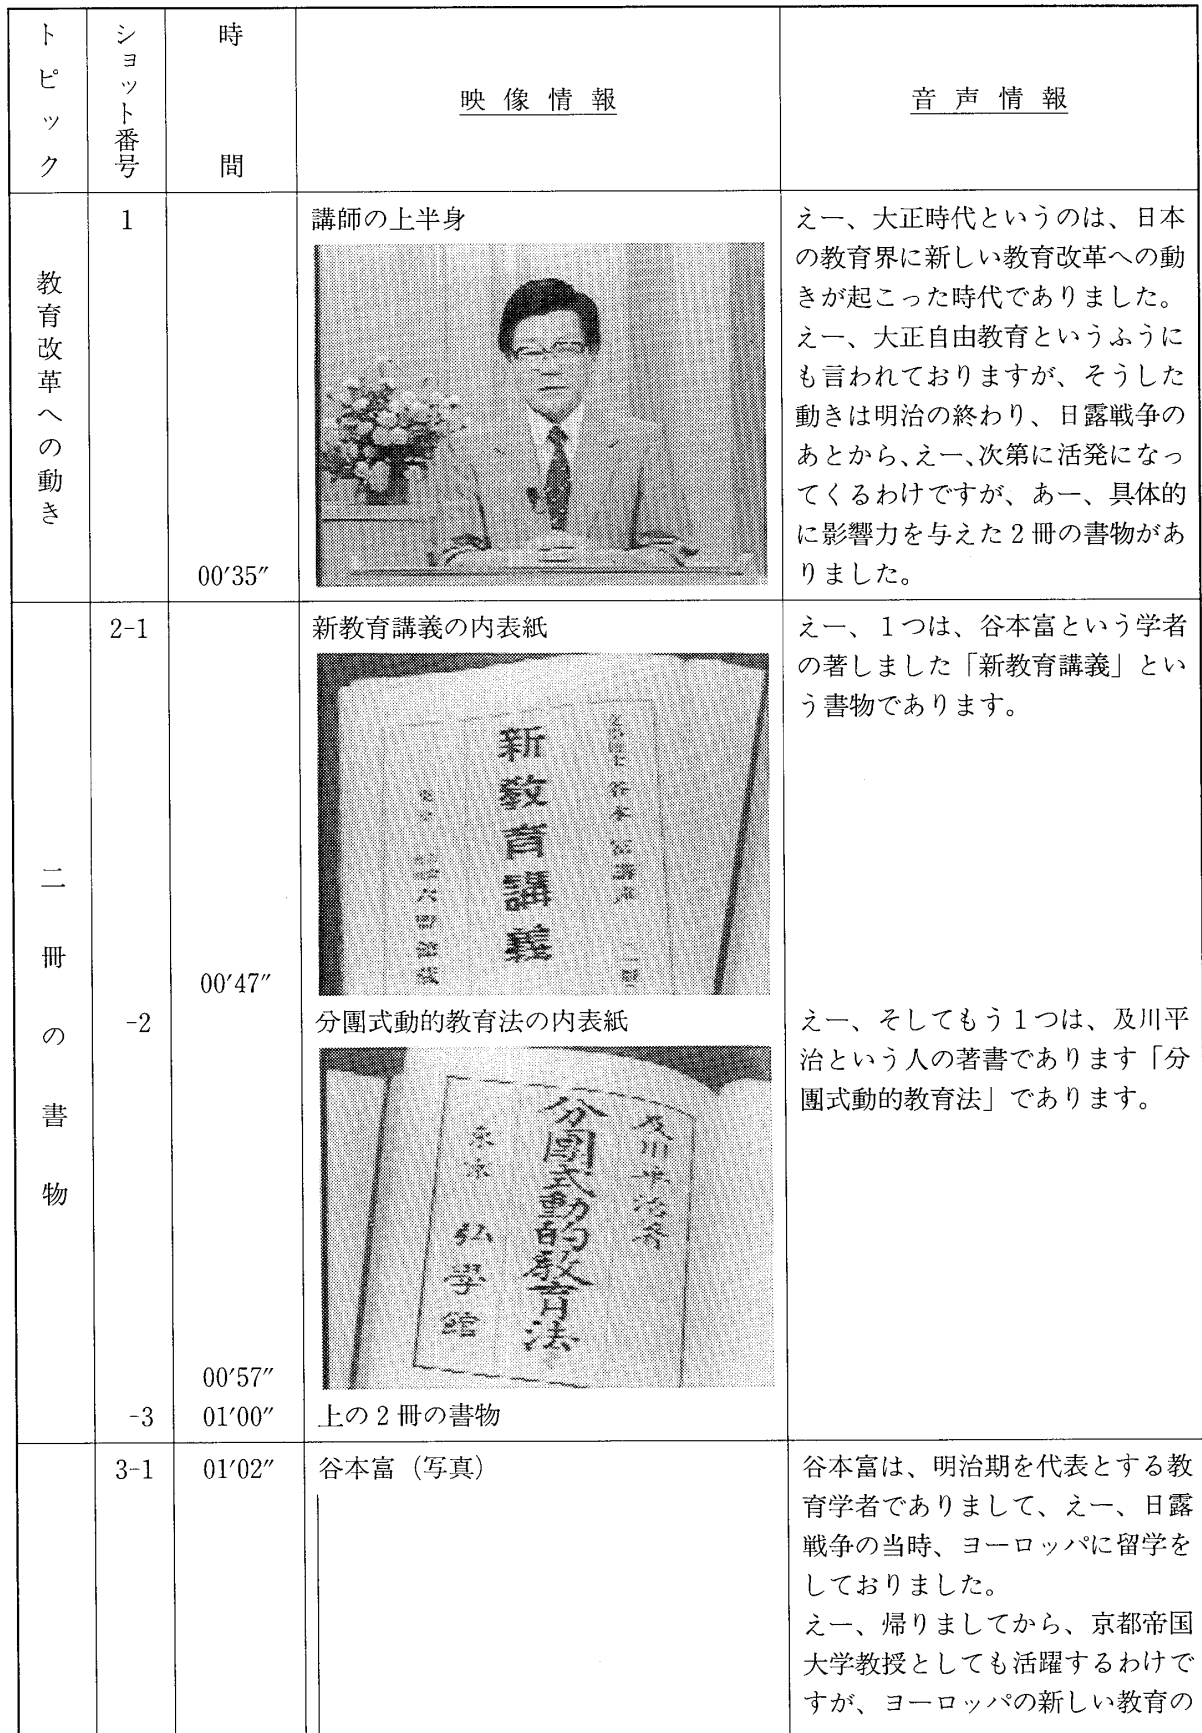 トピック
ショット番号
時間
映像情報
音声情報
教育改革への動き
1
00′35″
講師の上半身
えー、大正時代というのは、日本
の教育界に新しい教育改革への動
きが起こった時代でありました。
えー、大正自由教育というふうに
も言われておりますが、そうした
動きは明治の終わり、日露戦争の
あとから、えー、次第に活発になっ
てくるわけですが、あー、具体的
に影響力を与えた2冊の書物があ
りました。
二冊の書物
2-1
00′47″
新教育講義の内表紙
谷本富講述
新教育講義
えー、1つは、谷本富という学者
の著しました「新教育講義」とい
う書物であります。
-2
00′57″
分團式動的教育法の内表紙
及川平治著
分團式動的教育法
東京 弘學館
えー、そしてもう1つは、及川平
治という人の著書であります「分
團式動的教育法」であります。
-3
01′00″
上の2冊の書物
3-1
01′02″
谷本富（写真）
谷本富は、明治期を代表とする教
育学者でありまして、えー、日露
戦争の当時、ヨーロッパに留学を
しておりました。
えー、帰りましてから、京都帝国
大学教授としても活躍するわけで
すが、ヨーロッパの新しい教育の